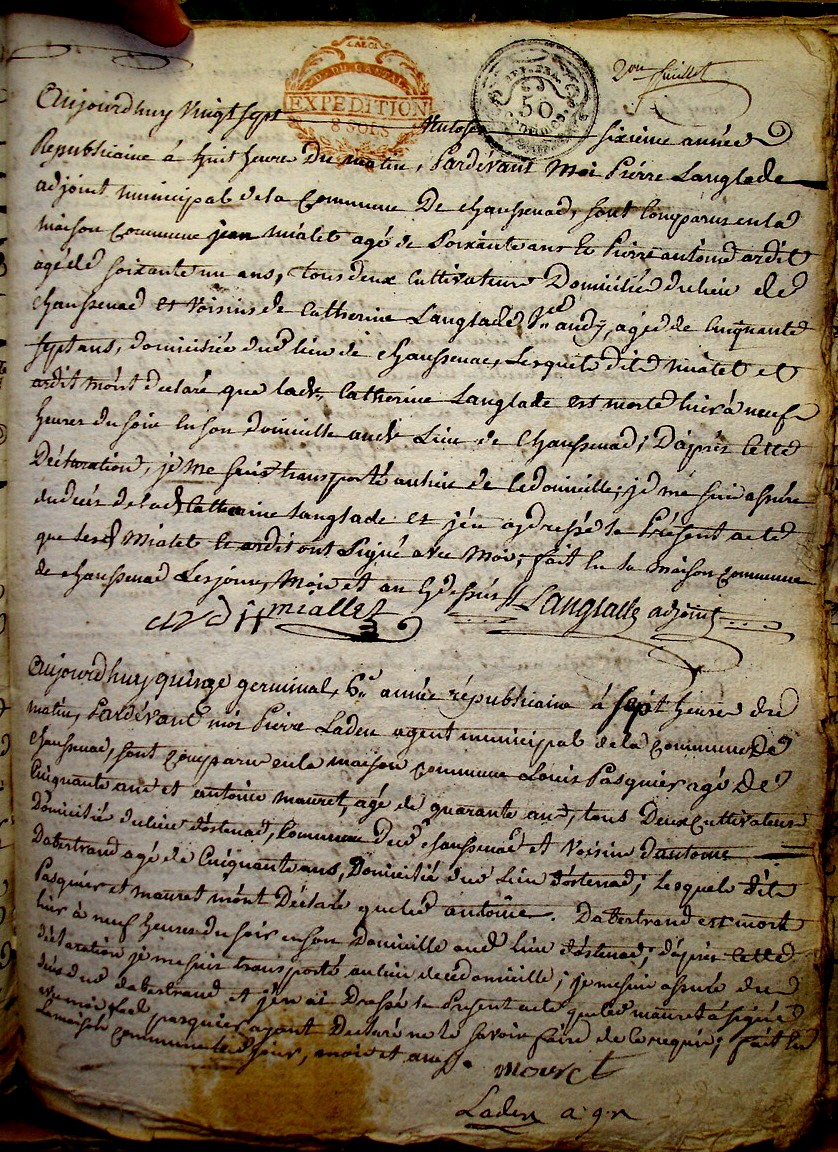 2me feuillet
D. DU CANTAL
EXPEDITION
8 SOLS
50
Aujourdhuy vingt sept ventose sixieme année
Republicaine à huit heures du matin, Pardevant Moi Pierre Langlade
adjoint municipal de la Commune De chaussenac, sont Comparus en la
maison commune jean mialet agé de soixante ans et Pierre antoine ardit
agé de soixante un ans, tous deux Cultivateurs Domiciliés du lieu de
chaussenac et voisins de Catherine Langlade agée de Cinquante
sept ans, domiciliée dud. lieu de chaussenac, Lesquels dits mialet et
ardit m'ont declaré que lade. Catherine Langlade est morte hier à neuf
heures du soir en son domicille aud. Lieu de Chaussenac; D'après cette
Déclaration, je me suis transporté au lieu de ce domicille, je me suis assuré
du decès de lad. Catherine Langlade et j'en ay dressé le Présent acte
que lesd. Mialet et ardit ont signé avec Moi, fait en la maison commune
de chaussenac Les jour, Mois et an Cydessus
ardit miallet Langlade adjoint
Aujourdhuy quinze germinal, 6e année républicaine à sept heures du
matin, Pardevant moi Pierre Laden agent municipal de la commune De
chaussenac, sont comparu en la maison commune Louis Pasquier agé de
Cinquante ans et antoine mauret, agé de quarante ans, tous Deux Cultivateurs
Domiciliés du lieu d'ostenac, Commune dud. chaussenac et voisins d'antoine
Dabertrand agé de Cinquante ans, Domicilié dud. Lieu d'ostenac; lesquels dits
Pasquier et mauret m'ont Déclaré que led. antoine Dabertrand est mort
hier à neuf heures du soir en son Domicille aud. lieu d'ostenac; d'après cette
déclaration je me suis transporté au lieu de ce domicille; je me suis assuré du
décès dud. dabertrand et j'en ai Dressé le Present acte que led. mauret a signé
avec moi led. pasquier ayant Declaré ne le savoir faire de ce requis; fait en
la maison commune les jour, mois et an
mouret
Laden agn